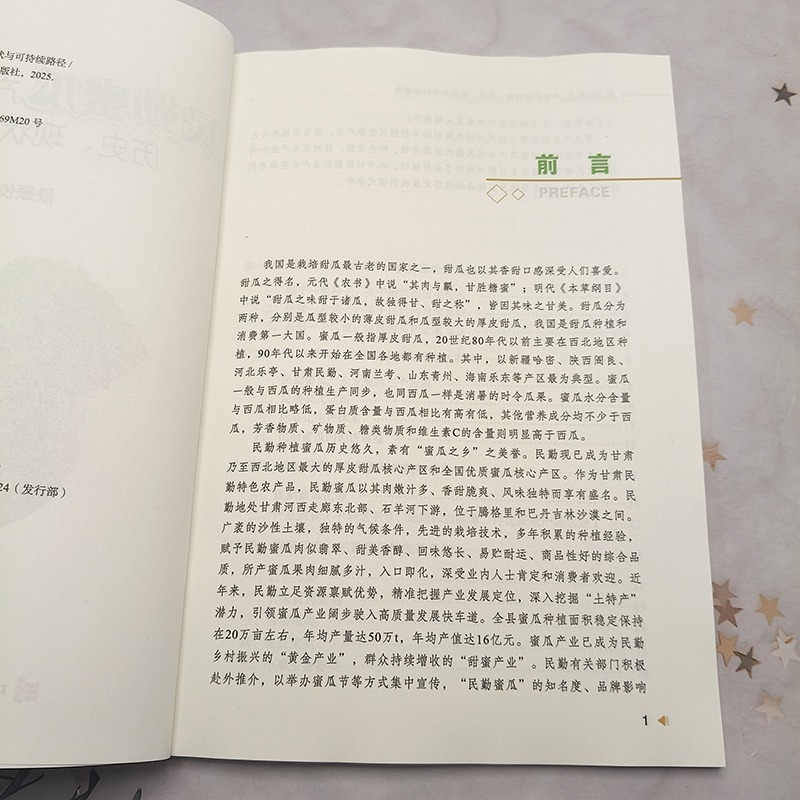 术与可持续路径/
版社，2025.
69M20 号
24（发行部）
前 言
PREFACE
我国是栽培甜瓜最古老的国家之一，甜瓜也以其香甜口感深受人们喜爱。
甜瓜之得名，元代《农书》中说“其肉与瓤，甘胜糖蜜”；明代《本草纲目》
中说“甜瓜之味甜于诸瓜，故独得甘、甜之称”，皆因其味之甘美。甜瓜分为
两种，分别是瓜型较小的薄皮甜瓜和瓜型较大的厚皮甜瓜，我国是甜瓜种植和
消费第一大国。蜜瓜一般指厚皮甜瓜，20世纪80年代以前主要在西北地区种
植，90年代以来开始在全国各地都有种植。其中，以新疆哈密、陕西阎良、
河北乐亭、甘肃民勤、河南兰考、山东青州、海南乐东等产区最为典型。蜜瓜
一般与西瓜的种植生产同步，也同西瓜一样是消暑的时令瓜果。蜜瓜水分含量
与西瓜相比略低，蛋白质含量与西瓜相比有高有低，其他营养成分均不少于西
瓜，芳香物质、矿物质、糖类物质和维生素C的含量则明显高于西瓜。
民勤种植蜜瓜历史悠久，素有“蜜瓜之乡”之美誉。民勤现已成为甘肃
乃至西北地区最大的厚皮甜瓜核心产区和全国优质蜜瓜核心产区。作为甘肃民
勤特色农产品，民勤蜜瓜以其肉嫩汁多、香甜脆爽、风味独特而享有盛名。民
勤地处甘肃河西走廊东北部、石羊河下游，位于腾格里和巴丹吉林沙漠之间。
广袤的沙性土壤，独特的气候条件，先进的栽培技术，多年积累的种植经验，
赋予民勤蜜瓜肉似翡翠、甜美香醇、回味悠长、易贮耐运、商品性好的综合品
质，所产蜜瓜果肉细腻多汁，入口即化，深受业内人士肯定和消费者欢迎。近
年来，民勤立足资源禀赋优势，精准把握产业发展定位，深入挖掘“土特产”
潜力，引领蜜瓜产业阔步驶入高质量发展快车道。全县蜜瓜种植面积稳定保持
在20万亩左右，年均产量达50万t，年均产值达16亿元。蜜瓜产业已成为民勤
乡村振兴的“黄金产业”，群众持续增收的“甜蜜产业”。民勤有关部门积极
赴外推介，以举办蜜瓜节等方式集中宣传，“民勤蜜瓜”的知名度、品牌影响
1